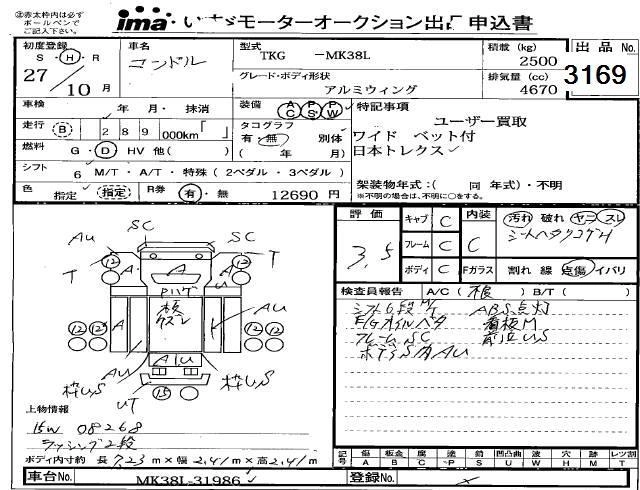 ※赤太枠内は必ず
ボールペンで
ご記入下さい。
ima いすゞモーターオークション出品申込書
初度登録
S・H・R
27/10月
車名
コンドル
型式
TKG -MK38L
グレード・ボディ形状
アルミウィング
積載(kg)
2500
排気量(cc)
4670
出品No.
3169
車検 年 月・抹消
走行 (B) 289 000km「 」
燃料 G・D HV 他( )
装備 AC PS PW
タコグラフ
有・無 別体
( 年 月)
特記事項
ユーザー買取
ワイド ベット付
日本トレクス
シフト 6 M/T・A/T・特殊(2ペダル・3ペダル)
色 指定 指定 R券 有・無 12690円
架装物年式:( 同 年式)・不明
※不明の場合は、不明に○をする。
評価
3.5
キャブ C
フレーム C
ボディ C
内装 C
汚れ 破れ ヤニ スレ
シートヘタリコゲ4
Fガラス 割れ 線 点傷 イバリ
検査員報告 A/C( 根 ) B/T( )
シフト6段M/T ABS点灯
E/Gオイルハタ 看板M
フレームSC 前凸US
ボデーS角AU
AU SC SC
T T
12 12
A A U
Pハゲ
根クズレ
A AU
12 12 12 12
A U
AU AU
枠US 枠US
UT 15
上物情報
15W 08268
ラッシング2段
ボディ内寸約 長 723 m×幅 2.41 m×高 2.41 m
記号 傷A 板金B 腐C 塗P 錆S 凹凸曲U 波W 穴H 跡M レツ割T
車台No. MK38L-31986
登録No.